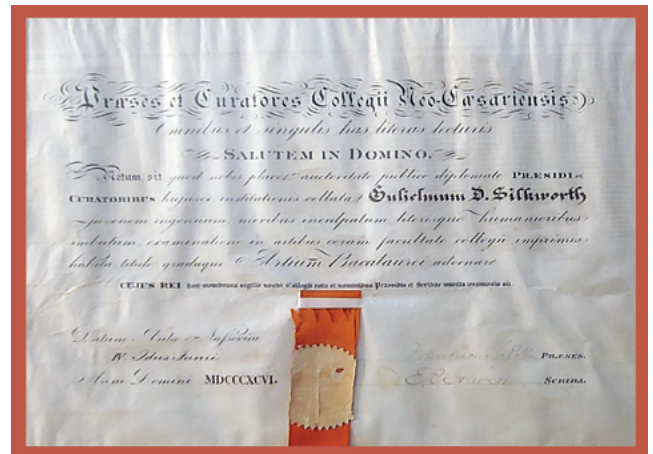 Præses et Curatores Collegii Neo-Cæsariensis
Omnibus et singulis has literas lecturis
SALUTEM IN DOMINO.
Notum sit quod nobis placet auctoritate publico diplomate PRÆSIDI et
CURATORIBUS hujusce institutionis collata Gulielmum D. Silkworth
juvenem ingenuum, moribus inculpatum, literisque humanioribus
imbutum, examinatione in artibus coram facultate collegii imprimis
habita, titulo graduque Artium Baccalaurei adornare
CUJUS REI haec membrana sigillo nostri Collegii rata et nominibus Præsidis et Scribae munita testimonio sit.
Datum Aulæ Nassovicæ
IV Idus Junii
Anno Domini MDCCCXCVI.
PRÆSES.
SCRIBA.